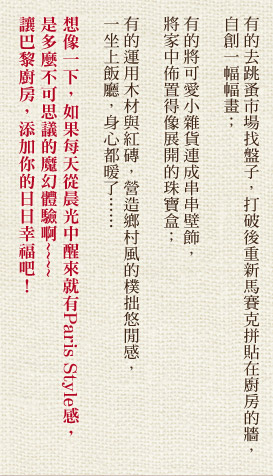 有的去跳蚤市場找盤子，打破後重新馬賽克拼貼在廚房的牆，
自創一幅幅畫；
有的將可愛小雜貨連成串串壁飾，
將家中佈置得像展開的珠寶盒；
有的運用木材與紅磚，營造鄉村風的樸拙悠閒感，
一坐上飯廳，身心都暖了……
想像一下，如果每天從晨光中醒來就有Paris Style感，
是多麼不可思議的魔幻體驗啊~~~~
讓巴黎廚房，添加你的日日幸福吧！